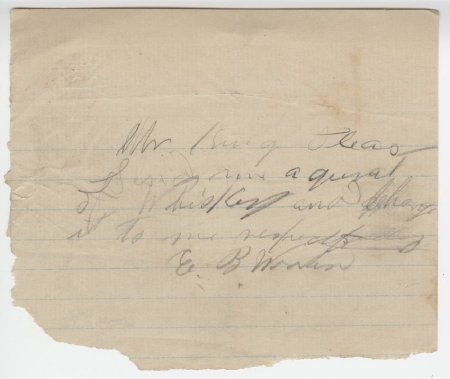 Mr King Pleas
Send me a quart
of Whiskey and Charg
it to me respectfully
E. B.